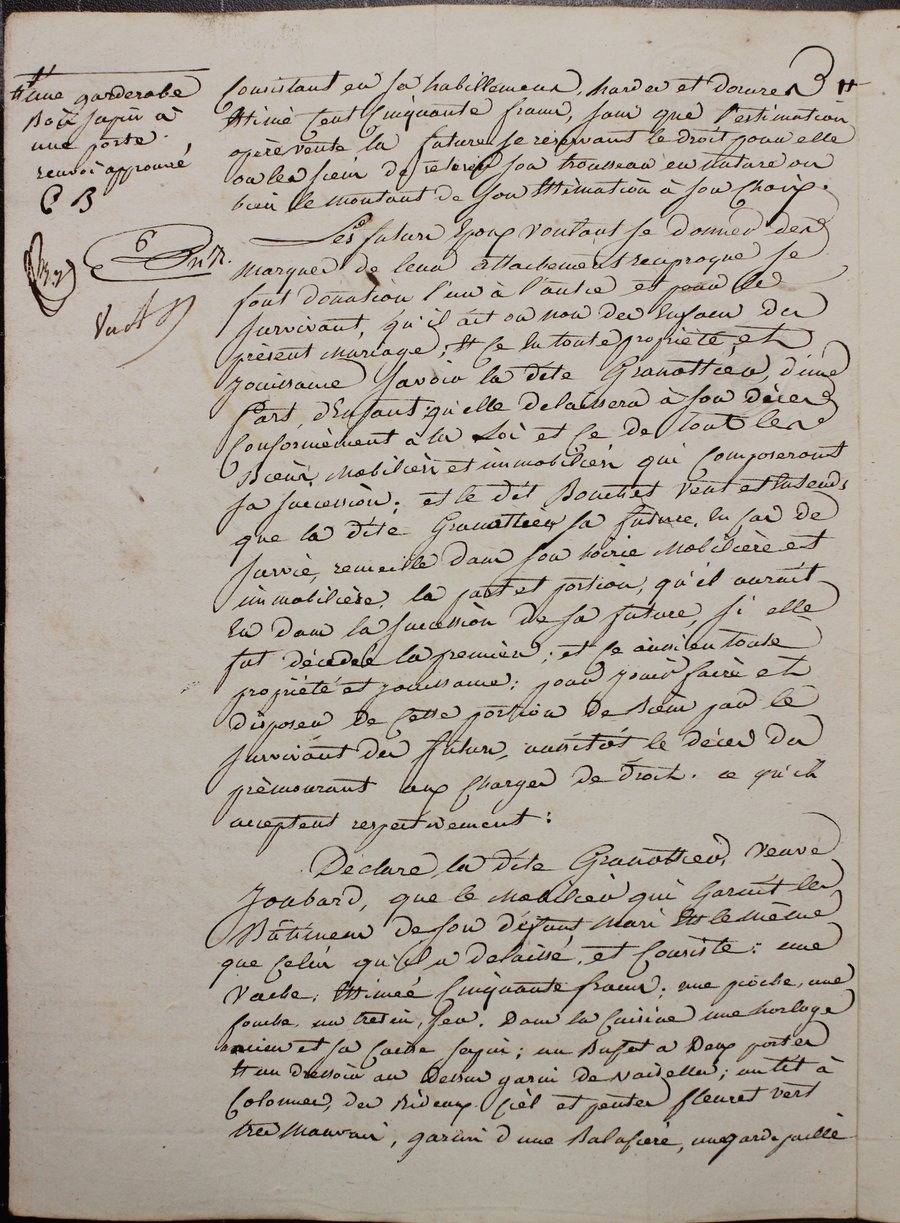 # une garderobe
Bois sapin à
une porte.
renvoi approuvé
C B
6
Vu
Consistant en sa habillemens, hardes et dorures #
Estimé Cent Cinquante francs, sans que l'estimation
opère vente la future se réservant le droit pour elle
ou les siens de retirer son trousseau en nature ou
bien le montant de son Estimation à son Choix.
Les futurs Epoux voulant se donner des
marques de leur attachement réciproque se
font donation l'un à l'autre et pour le
survivant, qu'il ait ou non des Enfans du
présent mariage; Et ce en toute propriété, et
jouissance Savoir la dite Granottier, d'une
Part, d'Enfant qu'elle delaissera à son décès
Conformément à la Loi et ce de tout les
Biens mobiliers et immobiliers qui Composeront
sa succession; et le dit Bouchet veut et Entend
que la dite Granottier sa future, En cas de
survie, recueille dans son hoirie mobilière et
immobilière, la part et portion, qu'il auroit
Eu dans la succession de sa future, si elle
fut décédée la première; et ce aussi en toute
propriété et jouissance; pour jouir faire et
disposer de Cette portion de Biens par le
survivant des futurs, aussitôt le décès du
prémourant aux Charges de droit. ce qu'ils
acceptent respectivement:
Déclare, la dite Granottier, veuve
Joubard, que le mobilier qui Garnit les
Bâtimens de son défunt mari Est le même
que Celui qu'il a délaissé, et Consiste: une
Vache, Estimée Cinquante francs; une pioche, une
fourche, un Dans la Cuisine une horloge
ancien et sa Caisse sapin; un Bufet a Deux portes
Et un dressoir au dessus garni de Vaisselles; un lit à
Colonnes, des Rideaux Ciel et pentes fleuret vert
tres mauvais, garni d'une Balafière, une garde paille